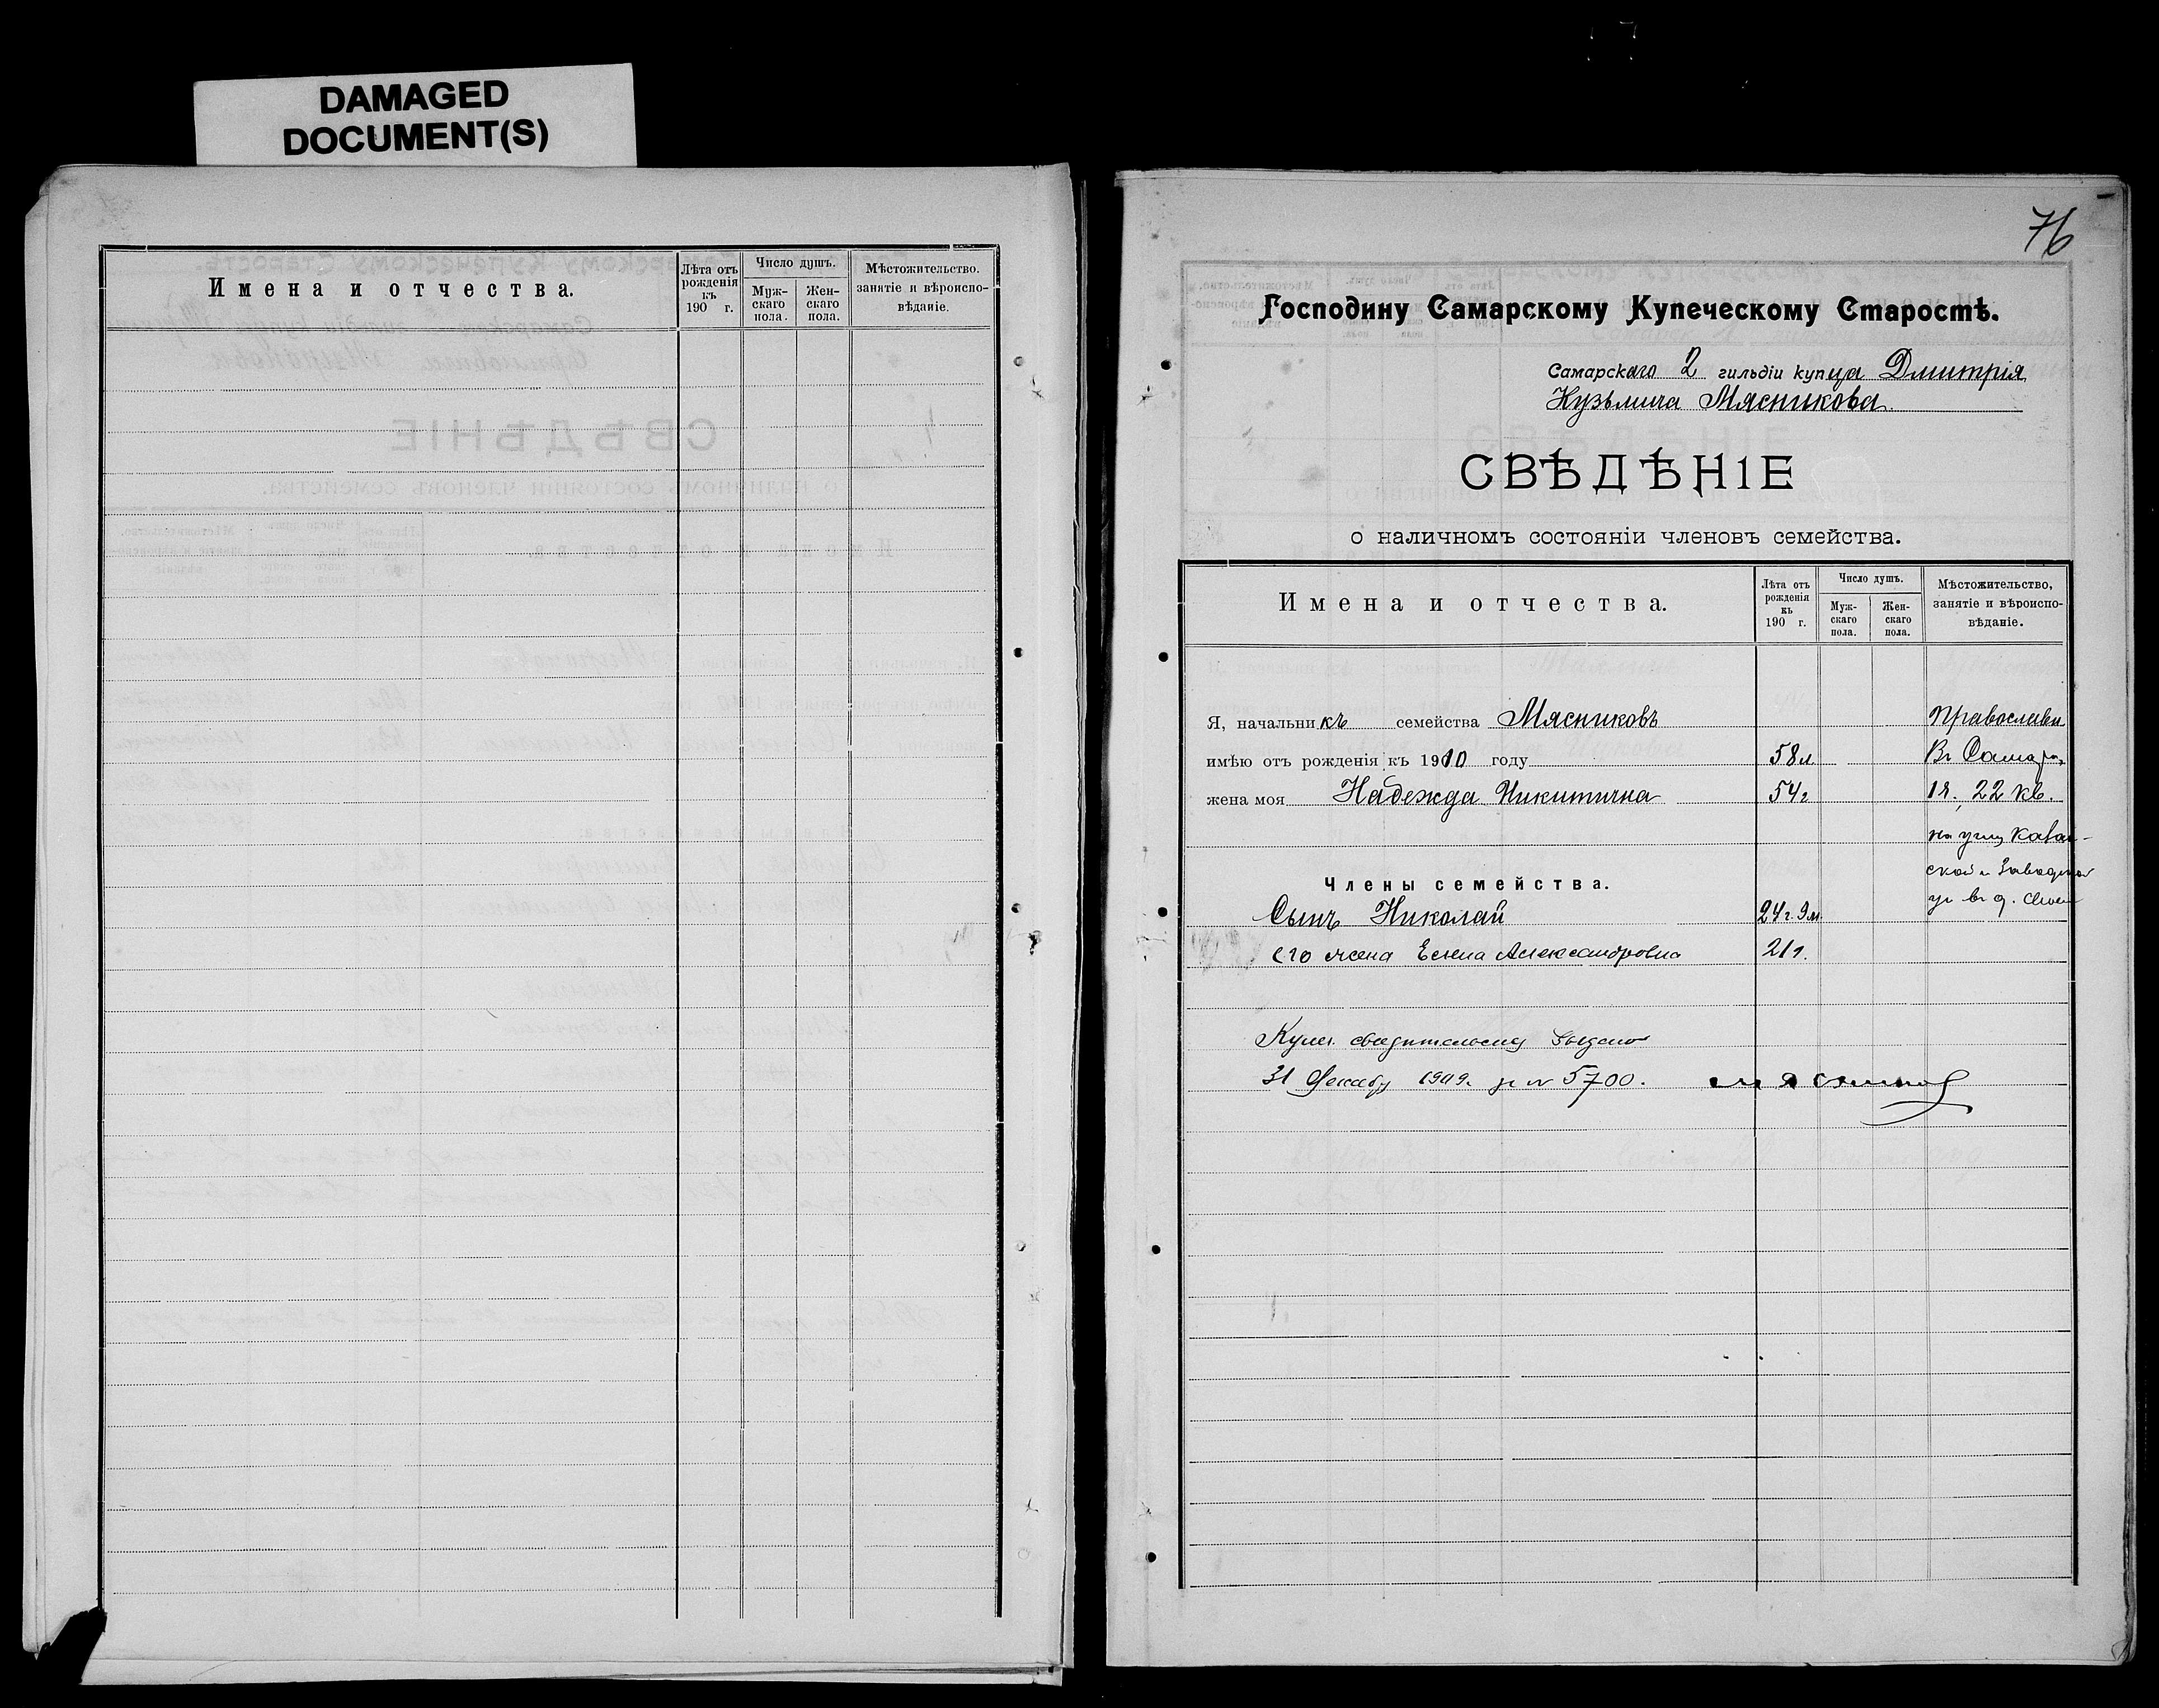 DAMAGED
DOCUMENT(S)
Имена и отчества.
Лѣта отъ
рожденія
къ
190 г.
Число душъ.
Муж-
скаго
пола.
Жен-
скаго
пола.
Мѣстожительство.
занятіе и вѣроиспо-
вѣданіе.
76
Господину Самарскому Купеческому Старостѣ.
Самарскаго 2 гильдіи купца Дмитрія
Кузьмича Мясникова.
СВѢДѢНІЕ
о наличномъ состояніи членовъ семейства.
Имена и отчества.
Лѣта отъ
рожденія
къ
190 г.
Число душъ.
Муж-
скаго
пола.
Жен-
скаго
пола.
Мѣстожительство,
занятіе и вѣроиспо-
вѣданіе.
Я, начальникъ семейства Мясниковъ
Православн
имѣю отъ рожденія къ 1910 году 58 л
Въ Самарѣ,
жена моя Надежда Никитична 54 г
1 ч., 22 кв.
на углу Казан-
ской и Заводской
Члены семейства.
ул въ д.
Сынъ Николай 24 г. 9 м.
его жена Елена Александровна 21 г.
Купеч. свидѣтельство выдано
31 Декабр 1909 г. за № 5700. Мясников